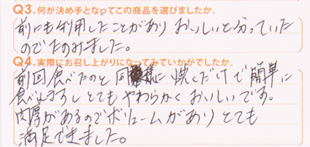 Q3.何が決め手となってこの商品を選びましたか。
前にも利用したことがありおいしいと分っていた
のでたのみました。
Q4.実際にお召し上がりになってみていかがでしたか。
前回食べたのと同様に焼くだけで簡単に
食べれますしとてもやわらかくおいしいです。
肉厚があるのでボリュームがありとても
満足できました。